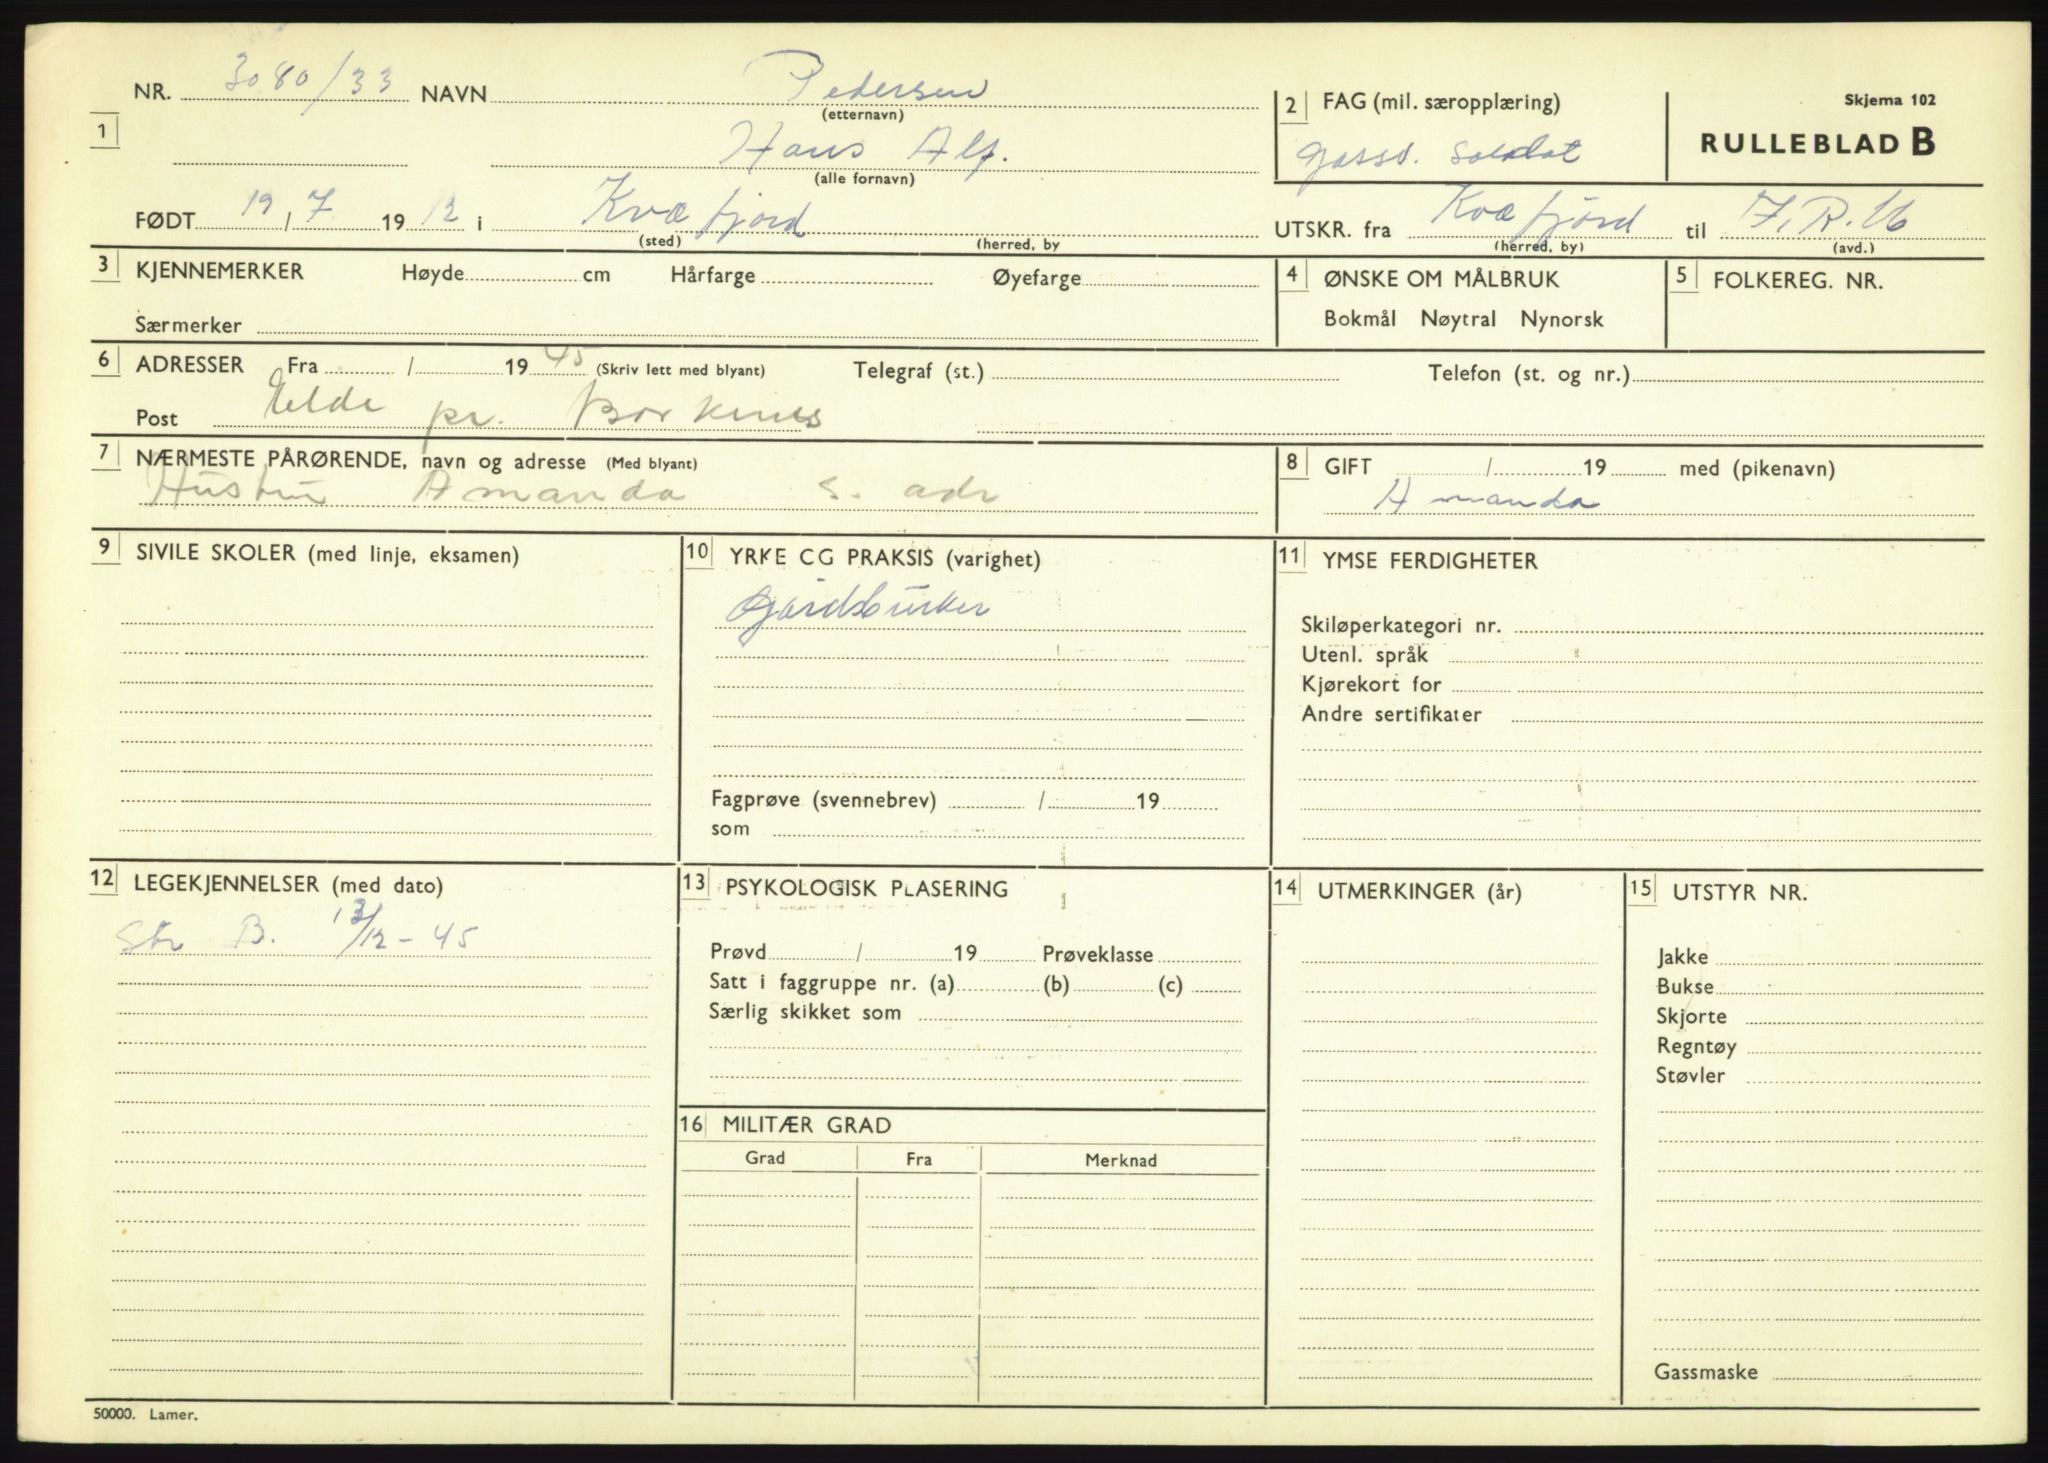 NR. 3080/33 NAVN Pedersen
(etternavn)
1
Hans Alf.
(alle fornavn)
FØDT 19/7 1912 i Kvæfjord
(sted) (herred, by
2 FAG (mil. særopplæring)
gass. soldat
Skjema 102
RULLEBLAD B
UTSKR. fra Kvæfjord til I.R.16
(herred, by) (avd.)
3 KJENNEMERKER Høyde cm Hårfarge Øyefarge
Særmerker
4 ØNSKE OM MÅLBRUK
Bokmål Nøytral Nynorsk
5 FOLKEREG. NR.
6 ADRESSER Fra / 1945 (Skriv lett med blyant) Telegraf (st.) Telefon (st. og nr.)
Post Elde pr. Borkenes
7 NÆRMESTE PÅRØRENDE, navn og adresse (Med blyant)
Hustru Amanda s. adr
8 GIFT / 19 med (pikenavn)
Amanda
9 SIVILE SKOLER (med linje, eksamen)
10 YRKE CG PRAKSIS (varighet)
Gårdsbruker
Fagprøve (svennebrev) / 19
som
11 YMSE FERDIGHETER
Skiløperkategori nr.
Utenl. språk
Kjørekort for
Andre sertifikater
12 LEGEKJENNELSER (med dato)
Str B. 13/12-45
13 PSYKOLOGISK PLASERING
Prøvd / 19 Prøveklasse
Satt i faggruppe nr. (a) (b) (c)
Særlig skikket som
14 UTMERKINGER (år)
15 UTSTYR NR.
Jakke
Bukse
Skjorte
Regntøy
Støvler
Gassmaske
16 MILITÆR GRAD
Grad Fra Merknad
50000. Lamer.